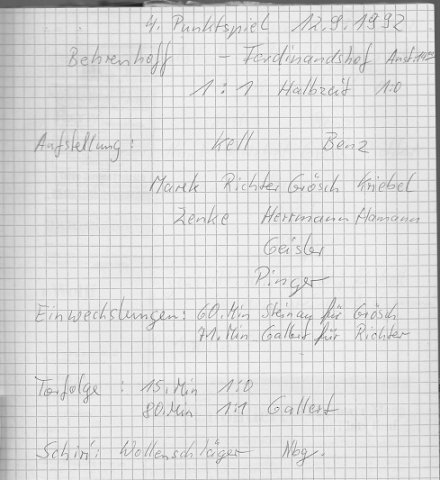 4. Punktspiel 12.9.1992
Behrenhoff - Ferdinandshof Anst.
1 : 1 Halbzeit 1:0
Aufstellung: Kell Benz
Marek Richter Grösch Kriebel
Zenke Herrmann Hamann
Geisler
Pinger
Einwechslungen: 60. Min Steinag für Grösch
71. Min Gallert für Richter
Torfolge : 15. Min 1:0
80. Min 1:1 Gallert
Schiri: Wollenschläger Nbg.